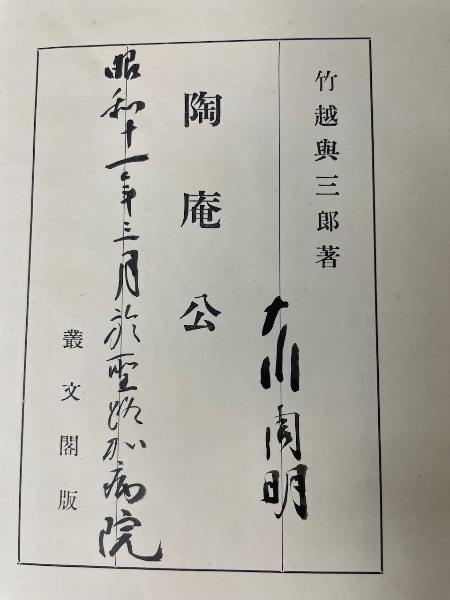 竹越與三郎著
大川周明
陶庵公
昭和十一年三月於聖路加病院
叢文閣版